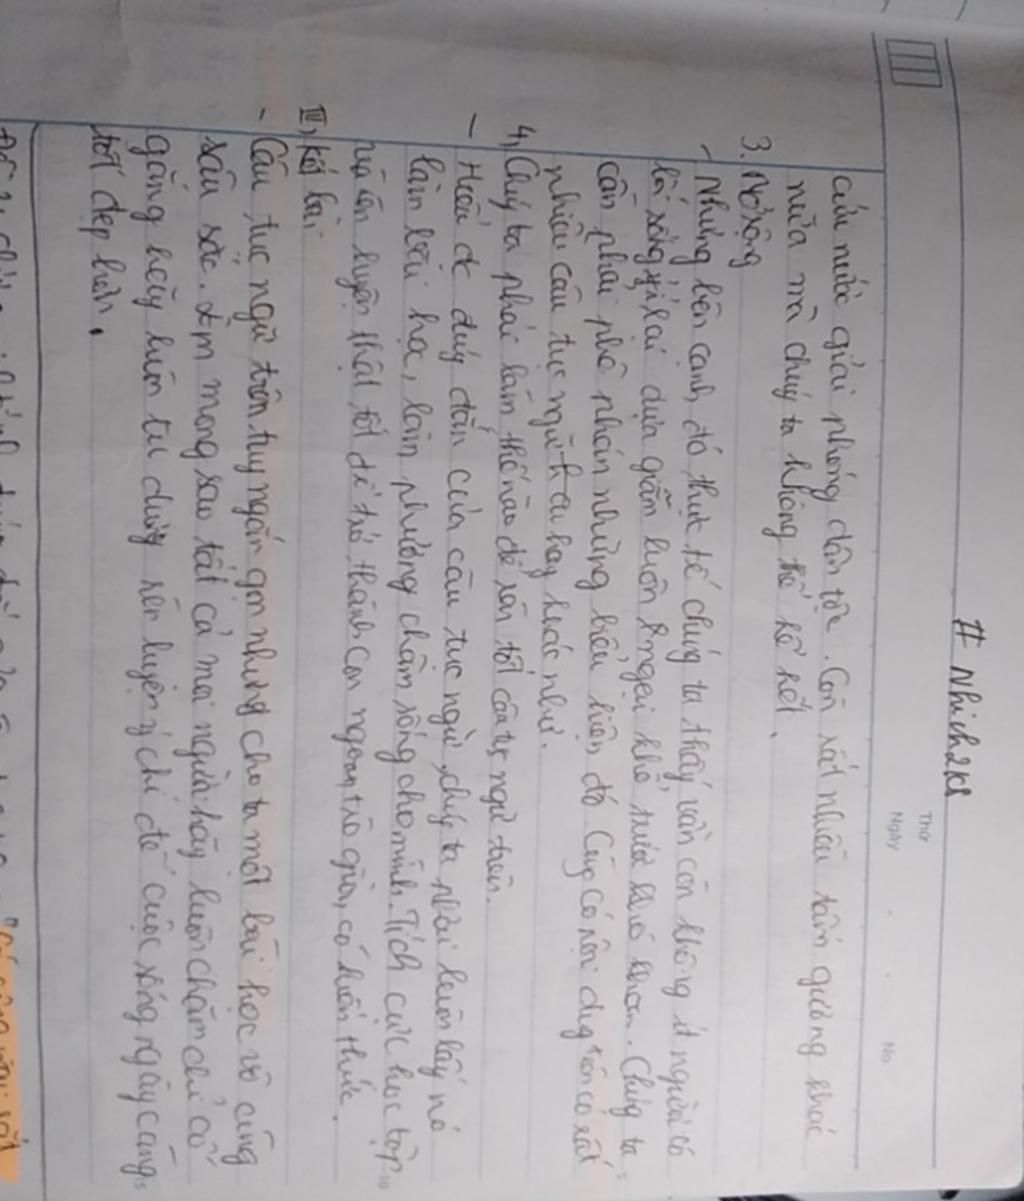 # Nhich2k8
Thứ
Ngày
No.
cứu nước giải phóng dân tộc. Còn rất nhiều tấm gương khác
nữa mà chúng ta không thể kể hết.
3. Mở rộng
- Những bên cạnh đó thực tế chúng ta thấy vẫn còn không ít người có
lối sống ỷ lại dựa giẫm luôn ngại khổ trước khó khăn. Chúng ta
cần phải phê phán những biểu hiện đó. Cùng có nội dung trên có rất
nhiều câu tục ngữ hay khác như.
4, Chúng ta phải làm thế nào để rèn tốt câu tục ngữ trên.
- Hiểu đc đúng đắn của câu tục ngữ, chúng ta phải luôn lấy nó
làm bài học, làm phương châm sống cho mình. Tích cực học tập
rèn luyện thật tốt để trở thành con ngoan, trò giỏi, có kiến thức.
III, Kết bài
- Câu tục ngữ trên tuy ngắn gọn nhưng cho ta một bài học vô cùng
sâu sắc. Em mong sao tất cả mọi người hãy luôn chăm chỉ cố
gắng hãy luôn tu dưỡng rèn luyện ý chí để cuộc sống ngày càng
tốt đẹp hơn.